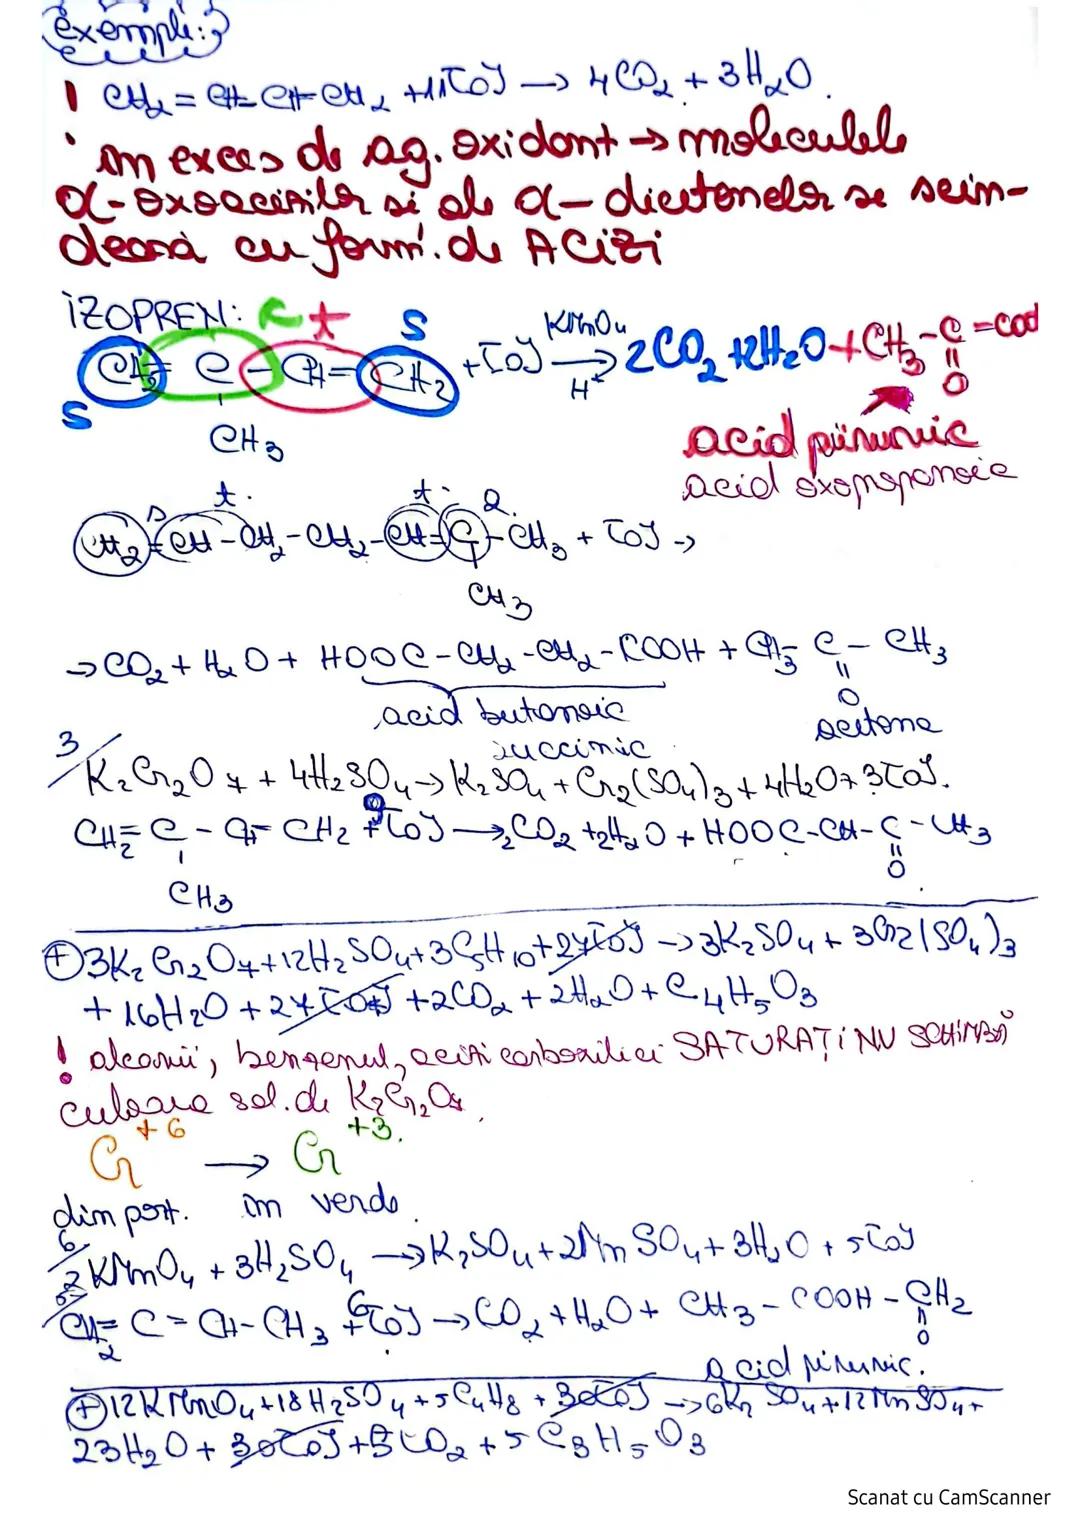 exemple:
! CH2 = CH-CH=CH2 +11[O] → 4CO2 + 3H2O.
în exces de ag. oxidant → moleculele
α-oxoacizilor si ale α-dicetonelor se scin-
dează cu form. de ACiZi
iZOPREN: K t S
CH2 = C - CH = CH2 + [O] KMnO4 → H+ 2CO2 + 2H2O + CH3 - C = COO
S CH3 O
acid piruvic
acid oxopropanoic
s t. t. 2.
CH2 = CH - CH2 - CH2 - CH = C - CH3 + [O] →
CH3
→ CO2 + H2O + HOOC - CH2 - CH2 - COOH + CH3 - C - CH3
O
acid butanoic acetona
succinic
3/ K2Cr2O7 + 4H2SO4 → K2SO4 + Cr2(SO4)3 + 4H2O + 3[O].
CH2 = C - CH = CH2 + 9[O] → 2CO2 + 2H2O + HOOC - CH - C - CH3
CH3 O
⊕ 3K2Cr2O7 + 12H2SO4 + 3C5H10 + 27[O] → 3K2SO4 + 3Cr2(SO4)3
+ 16H2O + 27[O] + 2CO2 + 2H2O + C4H5O3
! alcanii, benzenul, acizii carboxilici SATURAȚi NU SCHiMBĂ
culoarea sol. de K2Cr2O7.
Cr+6 → Cr+3.
din port. în verde.
6/ 2KMnO4 + 3H2SO4 → K2SO4 + 2MnSO4 + 3H2O + 5[O]
5/ CH2 = C = CH - CH3 + 6[O] → CO2 + H2O + CH3 - COOH - CH2
O
acid piruvic.
⊕ 12KMnO4 + 18H2SO4 + 5C4H8 + 30[O] → 6K2SO4 + 12MnSO4 +
23H2O + 30[O] + 5CO2 + 5C3H5O3
Scanat cu CamScanner